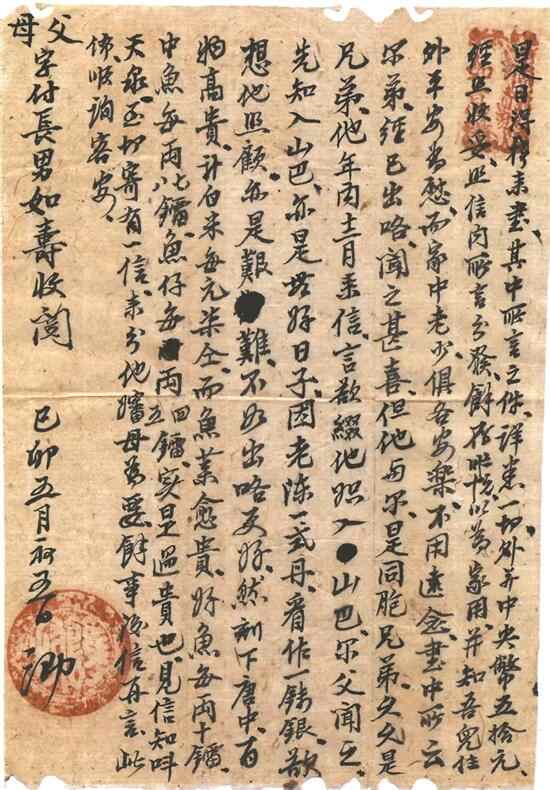 是日得接來書、其中所言之件、詳悉一切、外并中央幣五拾元、
經已收妥、照信内所言分發、餘存收悦、以為家用、并知吾兒在
外平安為慰、而家中老少俱各安樂、不用遠念、書中所云
尔弟、經已出咯、聞之甚喜、但他与尔是同胞兄弟、久久是
兄弟、他年内十二月來信、言欲綴他昆入山巴、尔父聞之、
先知入山巴、亦是無好日子、因老陳一武丹、看作一錢銀、欲
想他照顧、亦是艱難、不如出咯更好、然刻下唐中、百
物高貴、計白米每元柒仝、而魚菜愈貴、好魚每両十鐳、
中魚每両七八鐳、魚仔每両四五鐳、實是過貴也、見信知叫
天泉、至切寄有一信、來分他嬸母為要、餘事後信再言、此
佈、順詢客安、
父母字付長男如壽收閱
己卯五月初五日